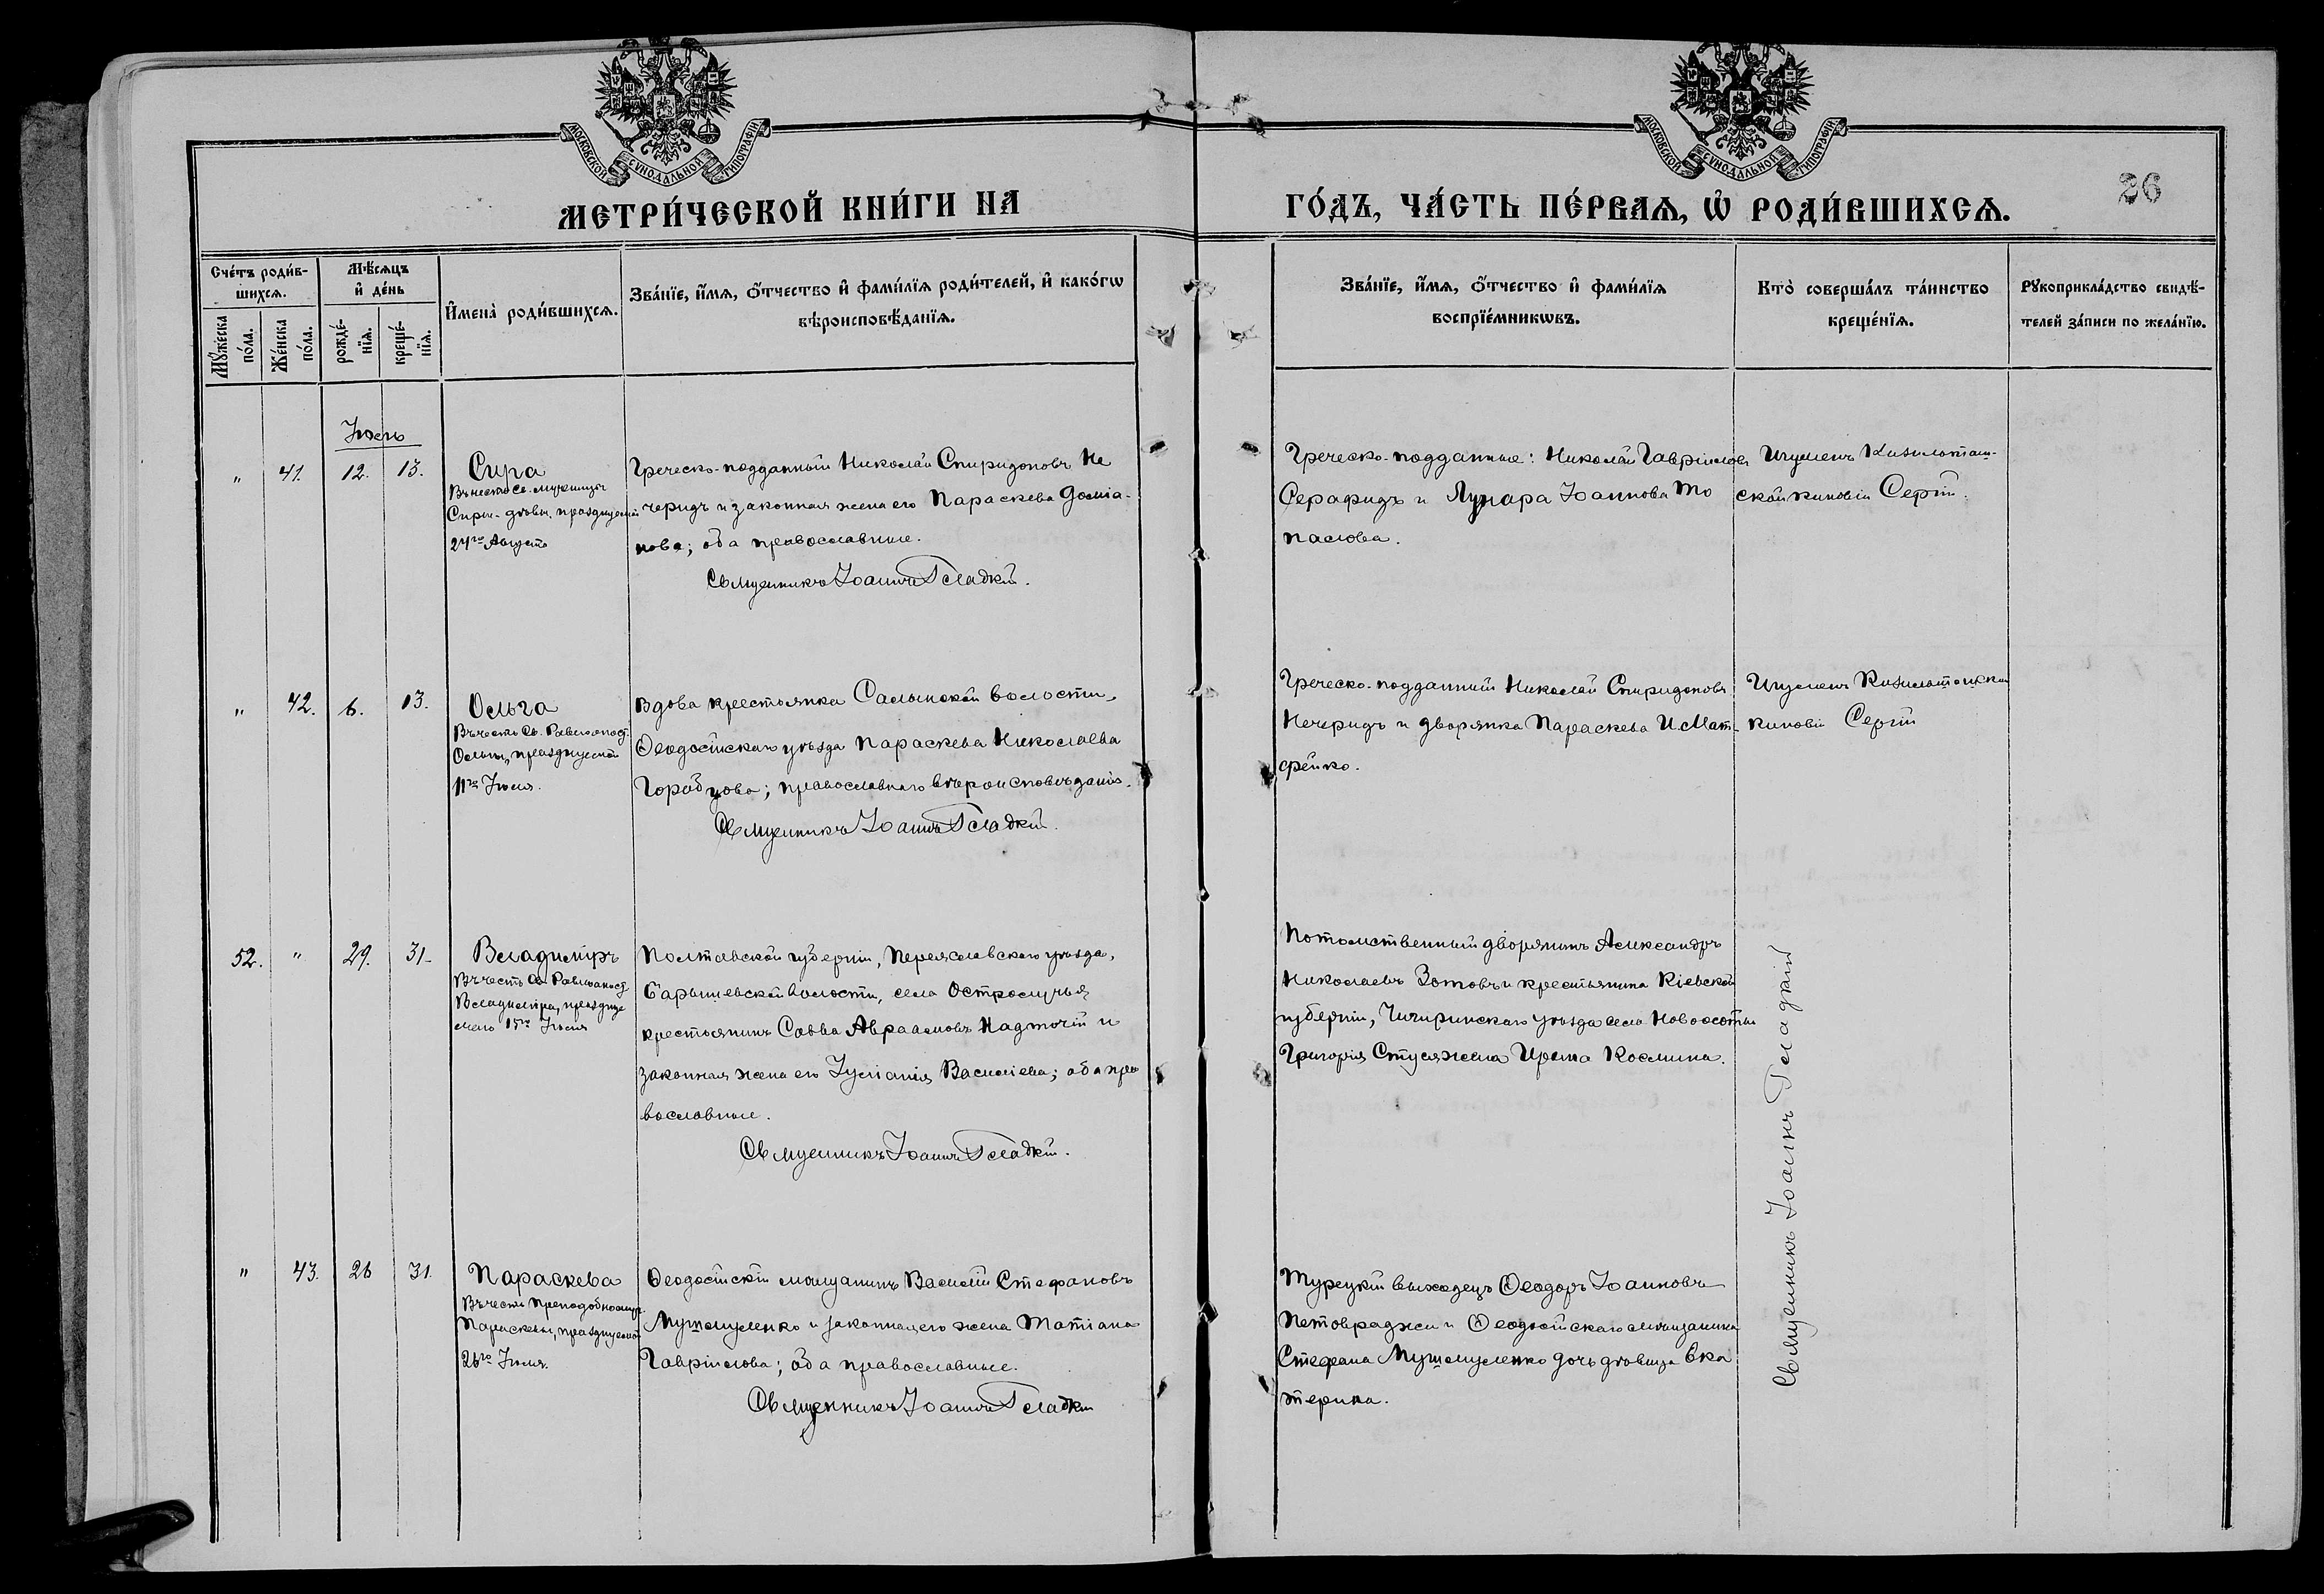 МОСКОВСКОЙ СѴНОДАЛЬНОЙ ТИПОГРАФІИ
МОСКОВСКОЙ СѴНОДАЛЬНОЙ ТИПОГРАФІИ
26
МЕТРИ́ЧЕСКОЙ КНИ́ГИ НА ГО́ДЪ, ЧА́СТЬ ПЕ́РВАѦ, Ѡ҆ РОДИ́ВШИХСѦ.
Сче́тъ роди́в-
шихсѧ.
Мꙋ́жеска по́ла.
Же́нска по́ла.
Мѣ́сѧцъ
и҆ де́нь
рожде́-
нїѧ.
креще́-
нїѧ.
И҆мена̀ роди́вшихсѧ.
Зва́нїе, и҆́мѧ, ѻ҆́тчество и҆ фами́лїѧ роди́телей, и҆ како́гѡ
вѣроисповѣ́данїѧ.
Зва́нїе, и҆́мѧ, ѻ҆́тчество и҆ фами́лїѧ
воспрїе́мникѡвъ.
Кто̀ соверша́лъ та́инство
креще́нїѧ.
Рꙋкоприкла́дство свидѣ́-
телей за́писи по жела́нїю.
Іюль
" 41. 12. 13.
Сира
Въ честь Св. мученицы
Сиры-дѣвы, празднуемой
24го Августа
Греческо-подданный Николай Спиридоновъ Не
черидъ и законная жена его Параскева Доміа-
нова; оба православные.
Священникъ Іоаннъ Гладкій.
Греческо-подданные: Николай Гавріиловъ
Серафидъ и Лунара Іоаннова То
палова.
Игуменъ Кизилташ-
ской киновіи Сергій.
" 42. 6. 13.
Ольга
Въ честь Св. Равноапост.
Ольги, празднуемой
11го Іюля.
Вдова крестьянка Салынской волости,
Ѳеодосійскаго уѣзда Параскева Николаева
Горобцова; православнаго вѣроисповѣданія.
Священникъ Іоаннъ Гладкій.
Греческо-подданный Николай Спиридоновъ
Нечеридъ и дворянка Параскева И. Мат-
фейко.
Игуменъ Кизилташской
киновіи Сергій
52. " 29. 31.
Владиміръ
Въ честь Св. Равноапост
Владиміра, праздну
емаго 15го Іюля
Полтавской губерніи, Переяславскаго уѣзда,
Барышевской волости, села Остролучья
крестьянинъ Савва Авраамовъ Надточій и
законная жена его Іуліанія Василіева; оба пра
вославные.
Священникъ Іоаннъ Гладкій.
Потомственный дворянинъ Александръ
Николаевъ Зотовъ и крестьянина Кіевской
губерніи, Чигиринскаго уѣзда села Новоселицы
Григорія Стуся жена Ирина Космина.
Священникъ Іоаннъ Гладкій
" 43. 26 31.
Параскева
Въ честь Преподобномуч.
Параскевы, празднуемой
26го Іюля.
Ѳеодосійскій мѣщанинъ Василій Стефановъ
Мушмуленко и законная его жена Татіана
Гавріилова; оба православные.
Священникъ Іоаннъ Гладкій
Турецкій выходецъ Ѳеодоръ Іоанновъ
Петовраджи и Ѳеодосійскаго мѣщанина
Стефана Мушмуленко дочь дѣвица Ека
терина.